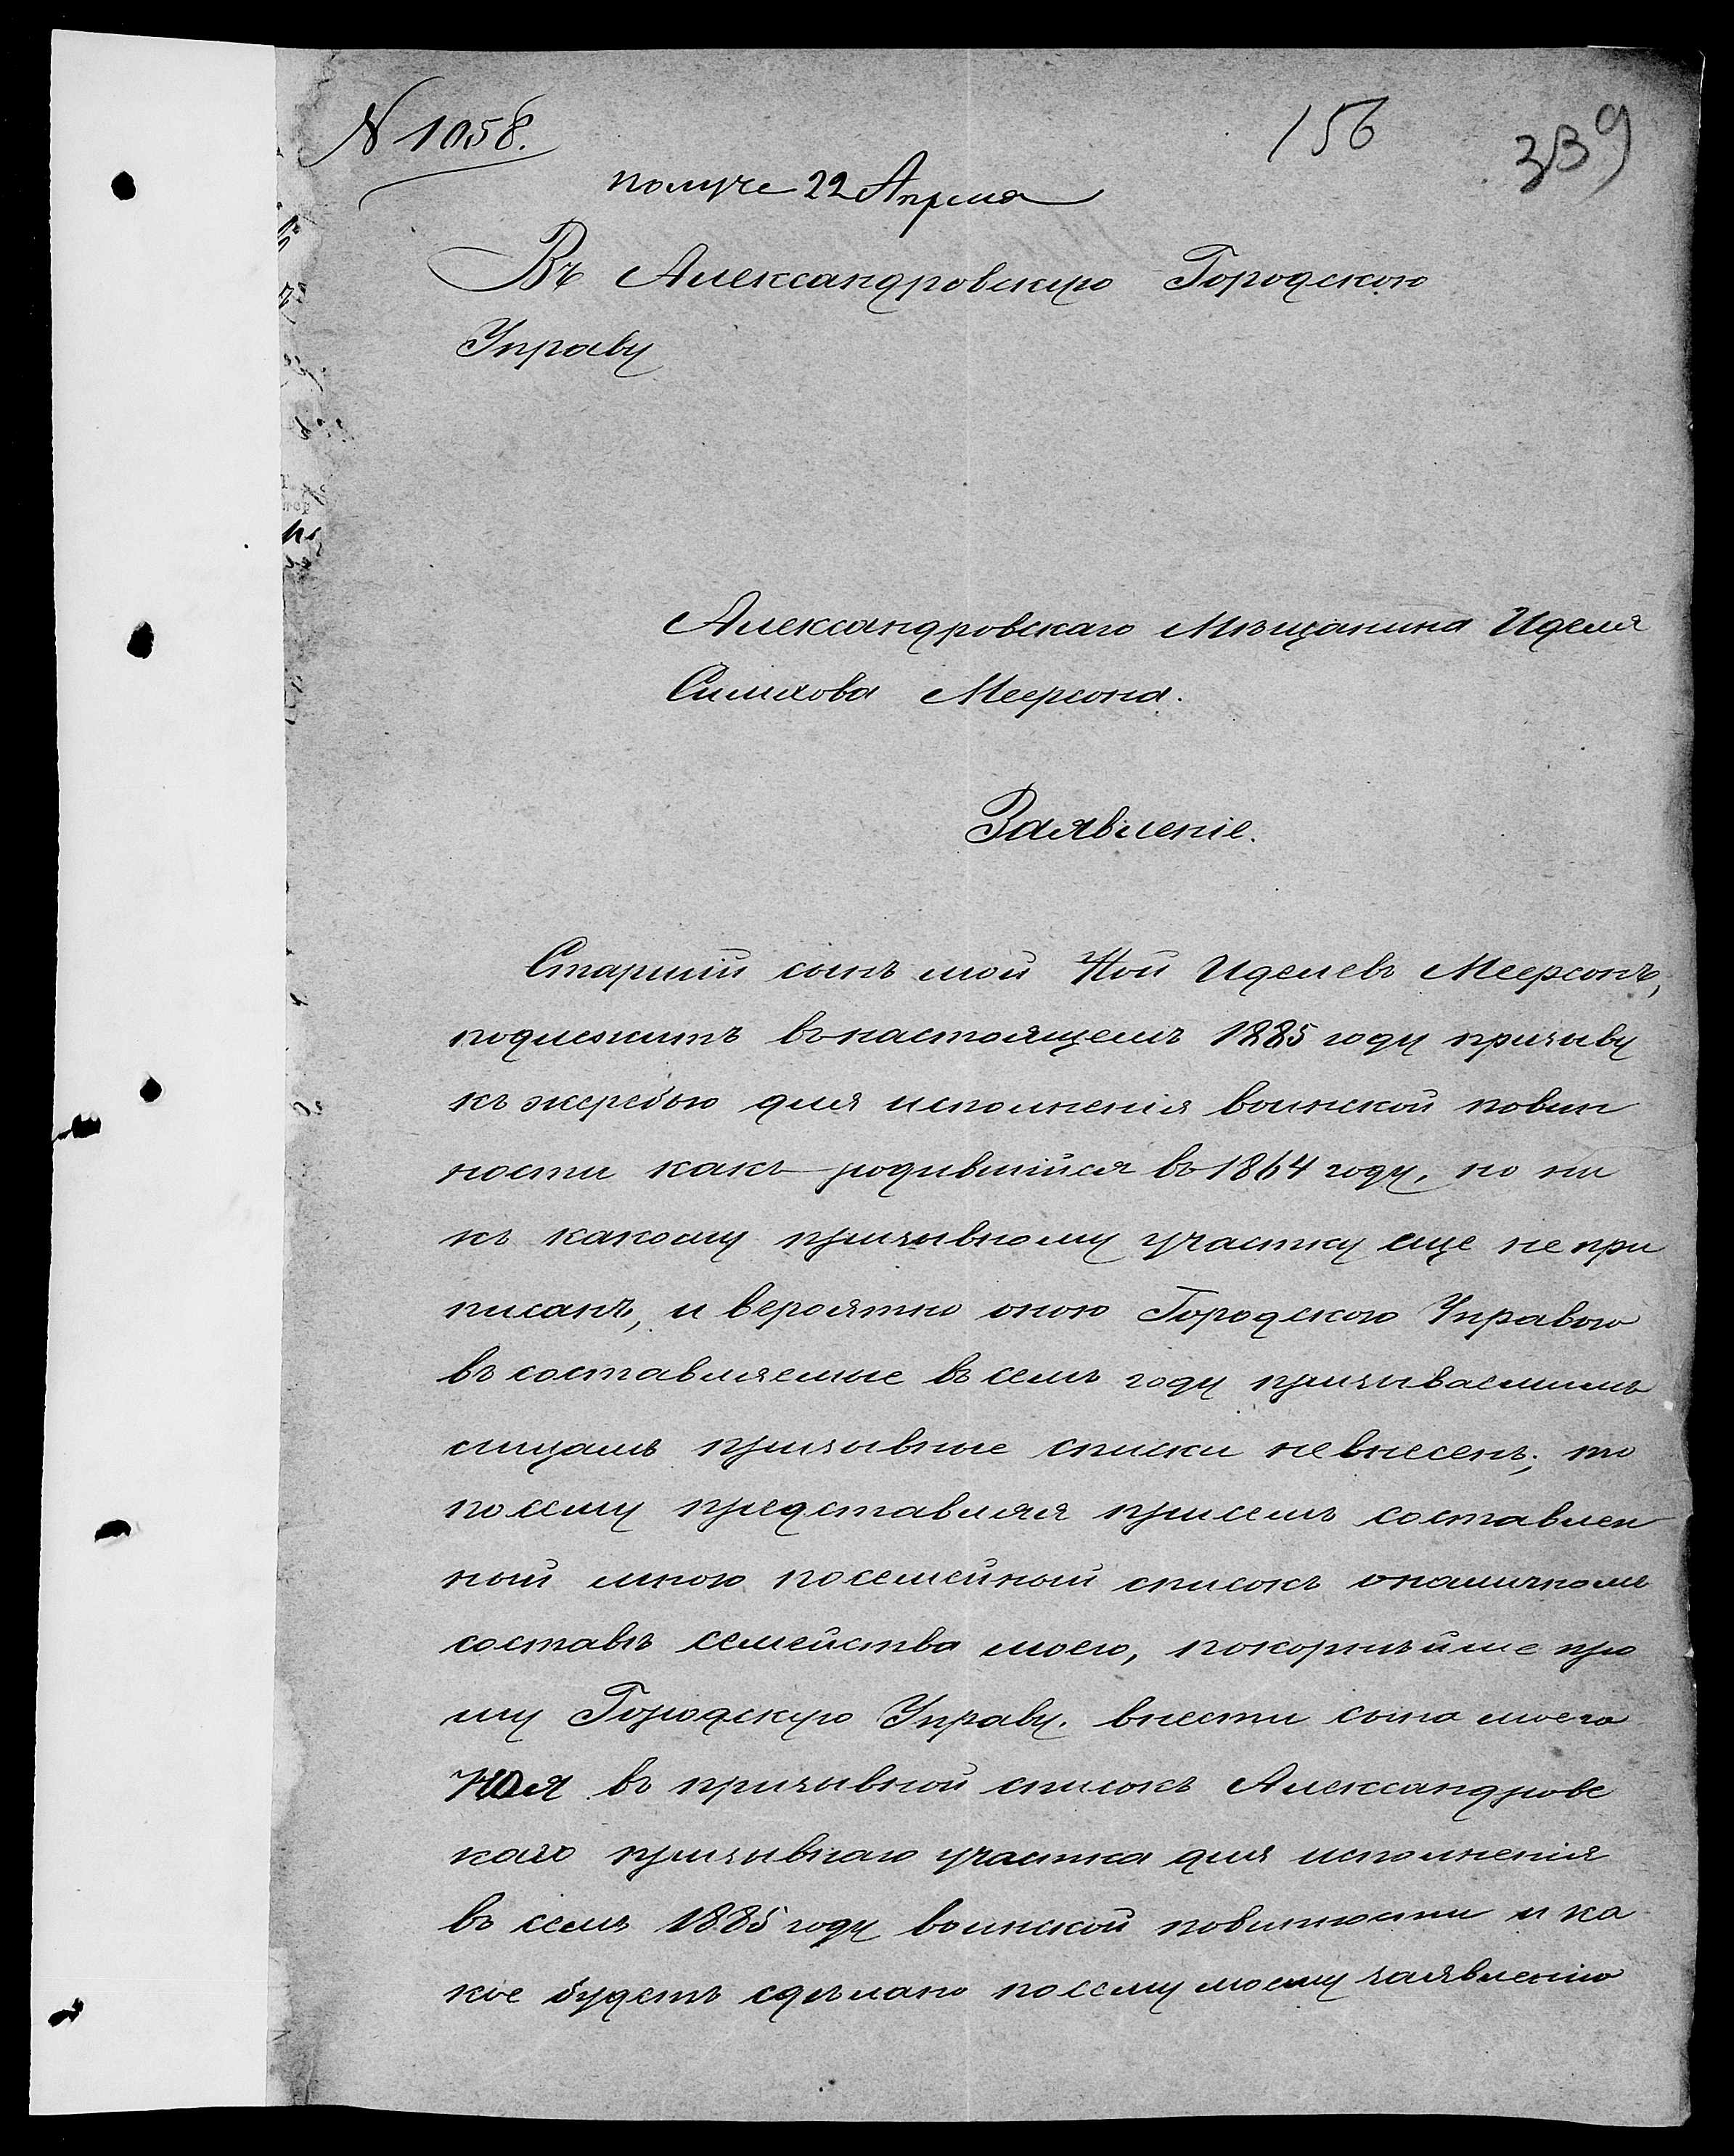 N 1058.
156
339
получе 22 Апреля
Въ Александровскую Городскою
Управу
Александровскаго Мѣщанина Иделя
Симхова Меерсона.
Заявленіе.
Старшій сынъ мой Ной Иделевъ Меерсонъ,
подлежитъ въ настоящемъ 1885 году призыву
къ жеребью для исполненія воинской повин
ности какъ родившійся въ 1864 году, но ни
къ какому призывному участку еще не при
писанъ, и вероятно оною Городскою Управою
въ составляемые въ семъ году призываемымъ
лицамъ призывные списки не внесенъ; то
по сему представляя при семъ составлен
ной мною посемейный списокъ о наличномъ
составѣ семейства моего, покорнѣйше про
шу Городскую Управу. внести сына моего
Ноя въ призывной списокъ Александровс
каго призывнаго участка для исполненія
въ семъ 1885 году воинской повинности и ка
кое будетъ сдѣлано по сему моему заявленію